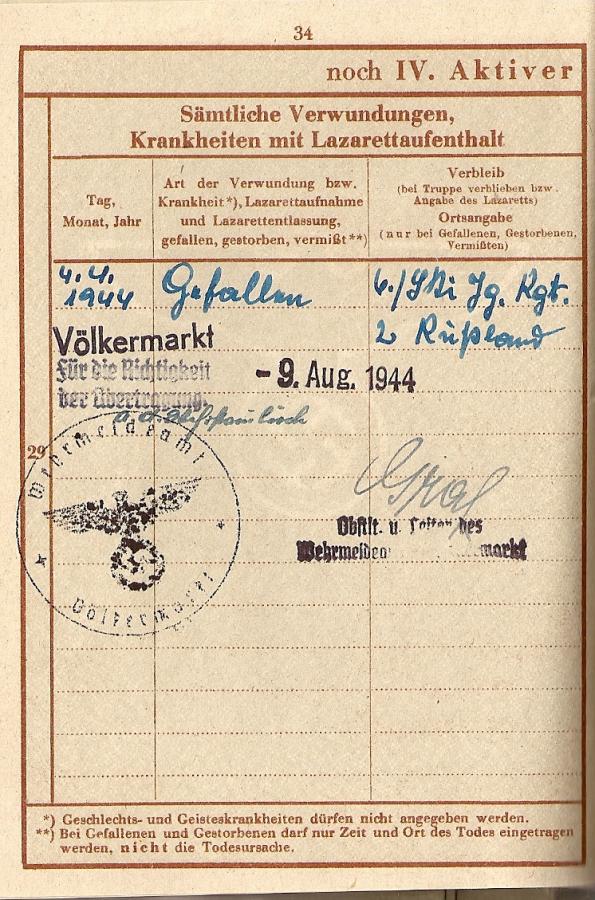 34
noch IV. Aktiver
Sämtliche Verwundungen,
Krankheiten mit Lazarettaufenthalt
Tag,
Monat, Jahr
Art der Verwundung bzw.
Krankheit*), Lazarettaufnahme
und Lazarettentlassung,
gefallen, gestorben, vermißt**)
Verbleib
(bei Truppe verblieben bzw.
Angabe des Lazaretts)
Ortsangabe
(nur bei Gefallenen, Gestorbenen,
Vermißten)
4.4.
1944
Gefallen
6./Ski Jg. Rgt.
2 Rußland
Völkermarkt
Für die Richtigkeit
der Übertragung:
- 9. Aug. 1944
29
Wehrmeldeamt
Völkermarkt
Obstlt. u. Leiter des
Wehrmeldeamtes Völkermarkt
*) Geschlechts- und Geisteskrankheiten dürfen nicht angegeben werden.
**) Bei Gefallenen und Gestorbenen darf nur Zeit und Ort des Todes eingetragen
werden, nicht die Todesursache.